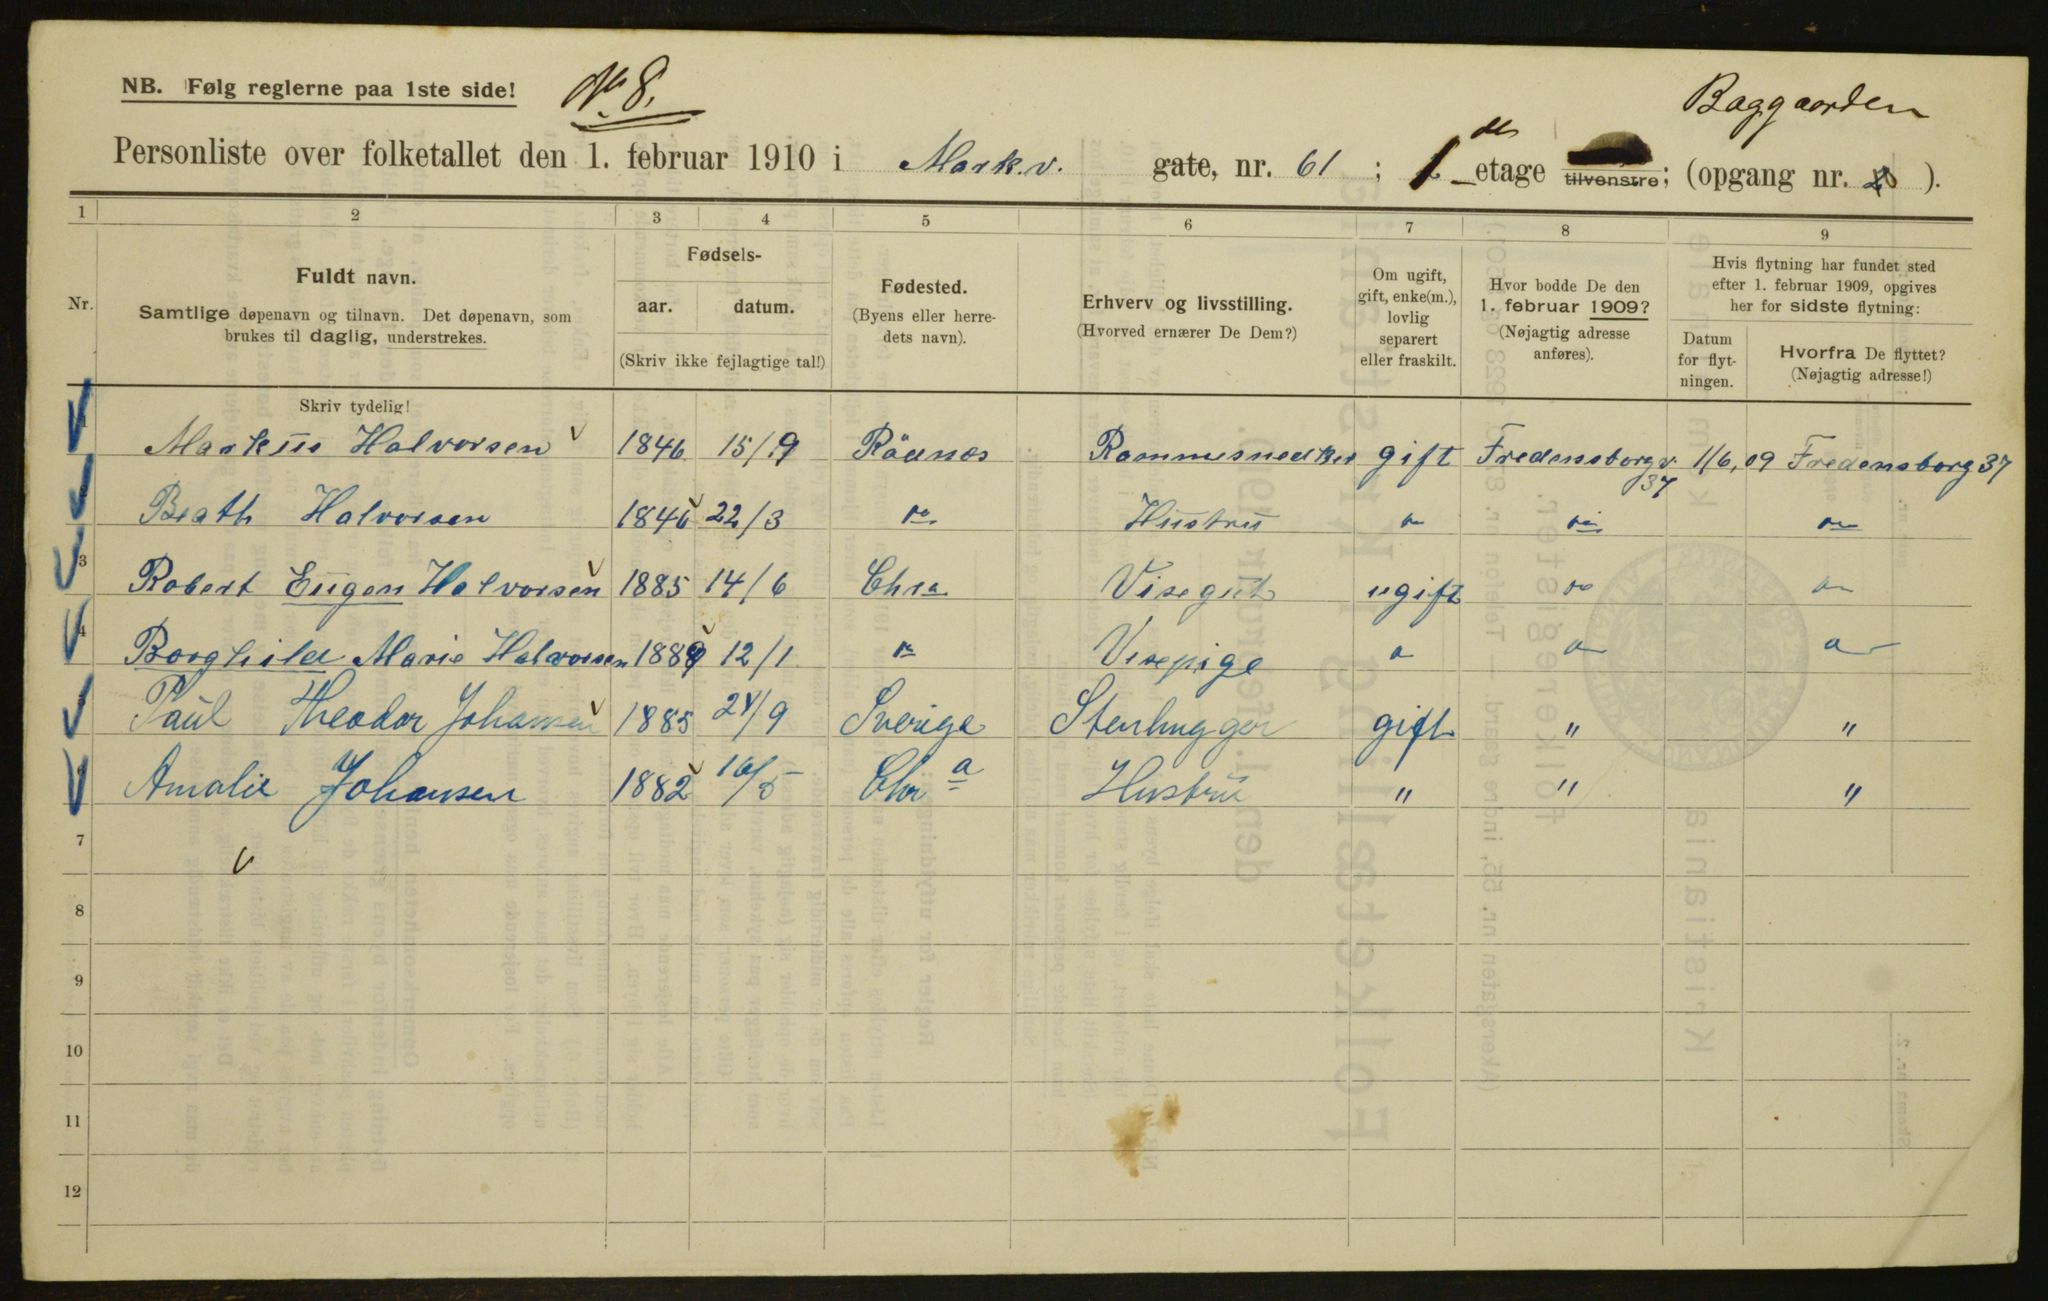 NB. Følg reglerne paa 1ste side!
No 8.
Baggaarden
Personliste over folketallet den 1. februar 1910 i Markv. gate, nr. 61 ; 1 etage tilvenstre; (opgang nr. ).
1 2 3 4 5 6 7 8 9
Nr.
Fuldt navn.
Samtlige døpenavn og tilnavn. Det døpenavn, som
brukes til daglig, understrekes.
Skriv tydelig!
Fødsels-
aar. datum.
(Skriv ikke fejlagtige tal!)
Fødested.
(Byens eller herre-
dets navn).
Erhverv og livsstilling.
(Hvorved ernærer De Dem?)
Om ugift,
gift, enke(m.),
lovlig
separert
eller fraskilt.
Hvor bodde De den
1. februar 1909?
(Nøjagtig adresse
anføres).
Hvis flytning har fundet sted
efter 1. februar 1909, opgives
her for sidste flytning:
Datum
for flyt-
ningen.
Hvorfra De flyttet?
(Nøjagtig adresse!)
Markus Halvorsen 1846 15/9 Råenes Rammesnedker gift Fredensborgv. 37 1/6,09 Fredensborg 37
Beath Halvorsen 1846 22/3 " Hustru " " "
3 Robert Eugen Halvorsen 1885 14/6 Chra Visegut ugift " "
4 Borghild Marie Halvorsen 1889 12/1 " Visepige " " "
Paul Theodor Johansen 1885 24/9 Sverige Stenhugger gift " "
Amalie Johansen 1882 16/5 Chra Hustru " " "
7
8
9
10
11
12